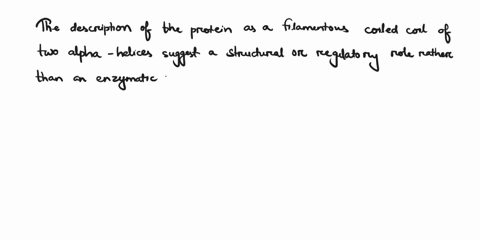 The description of the protein as a filamentous coiled coil of
two alpha-helices suggest a structural or regulatory role rather
than an enzymatic